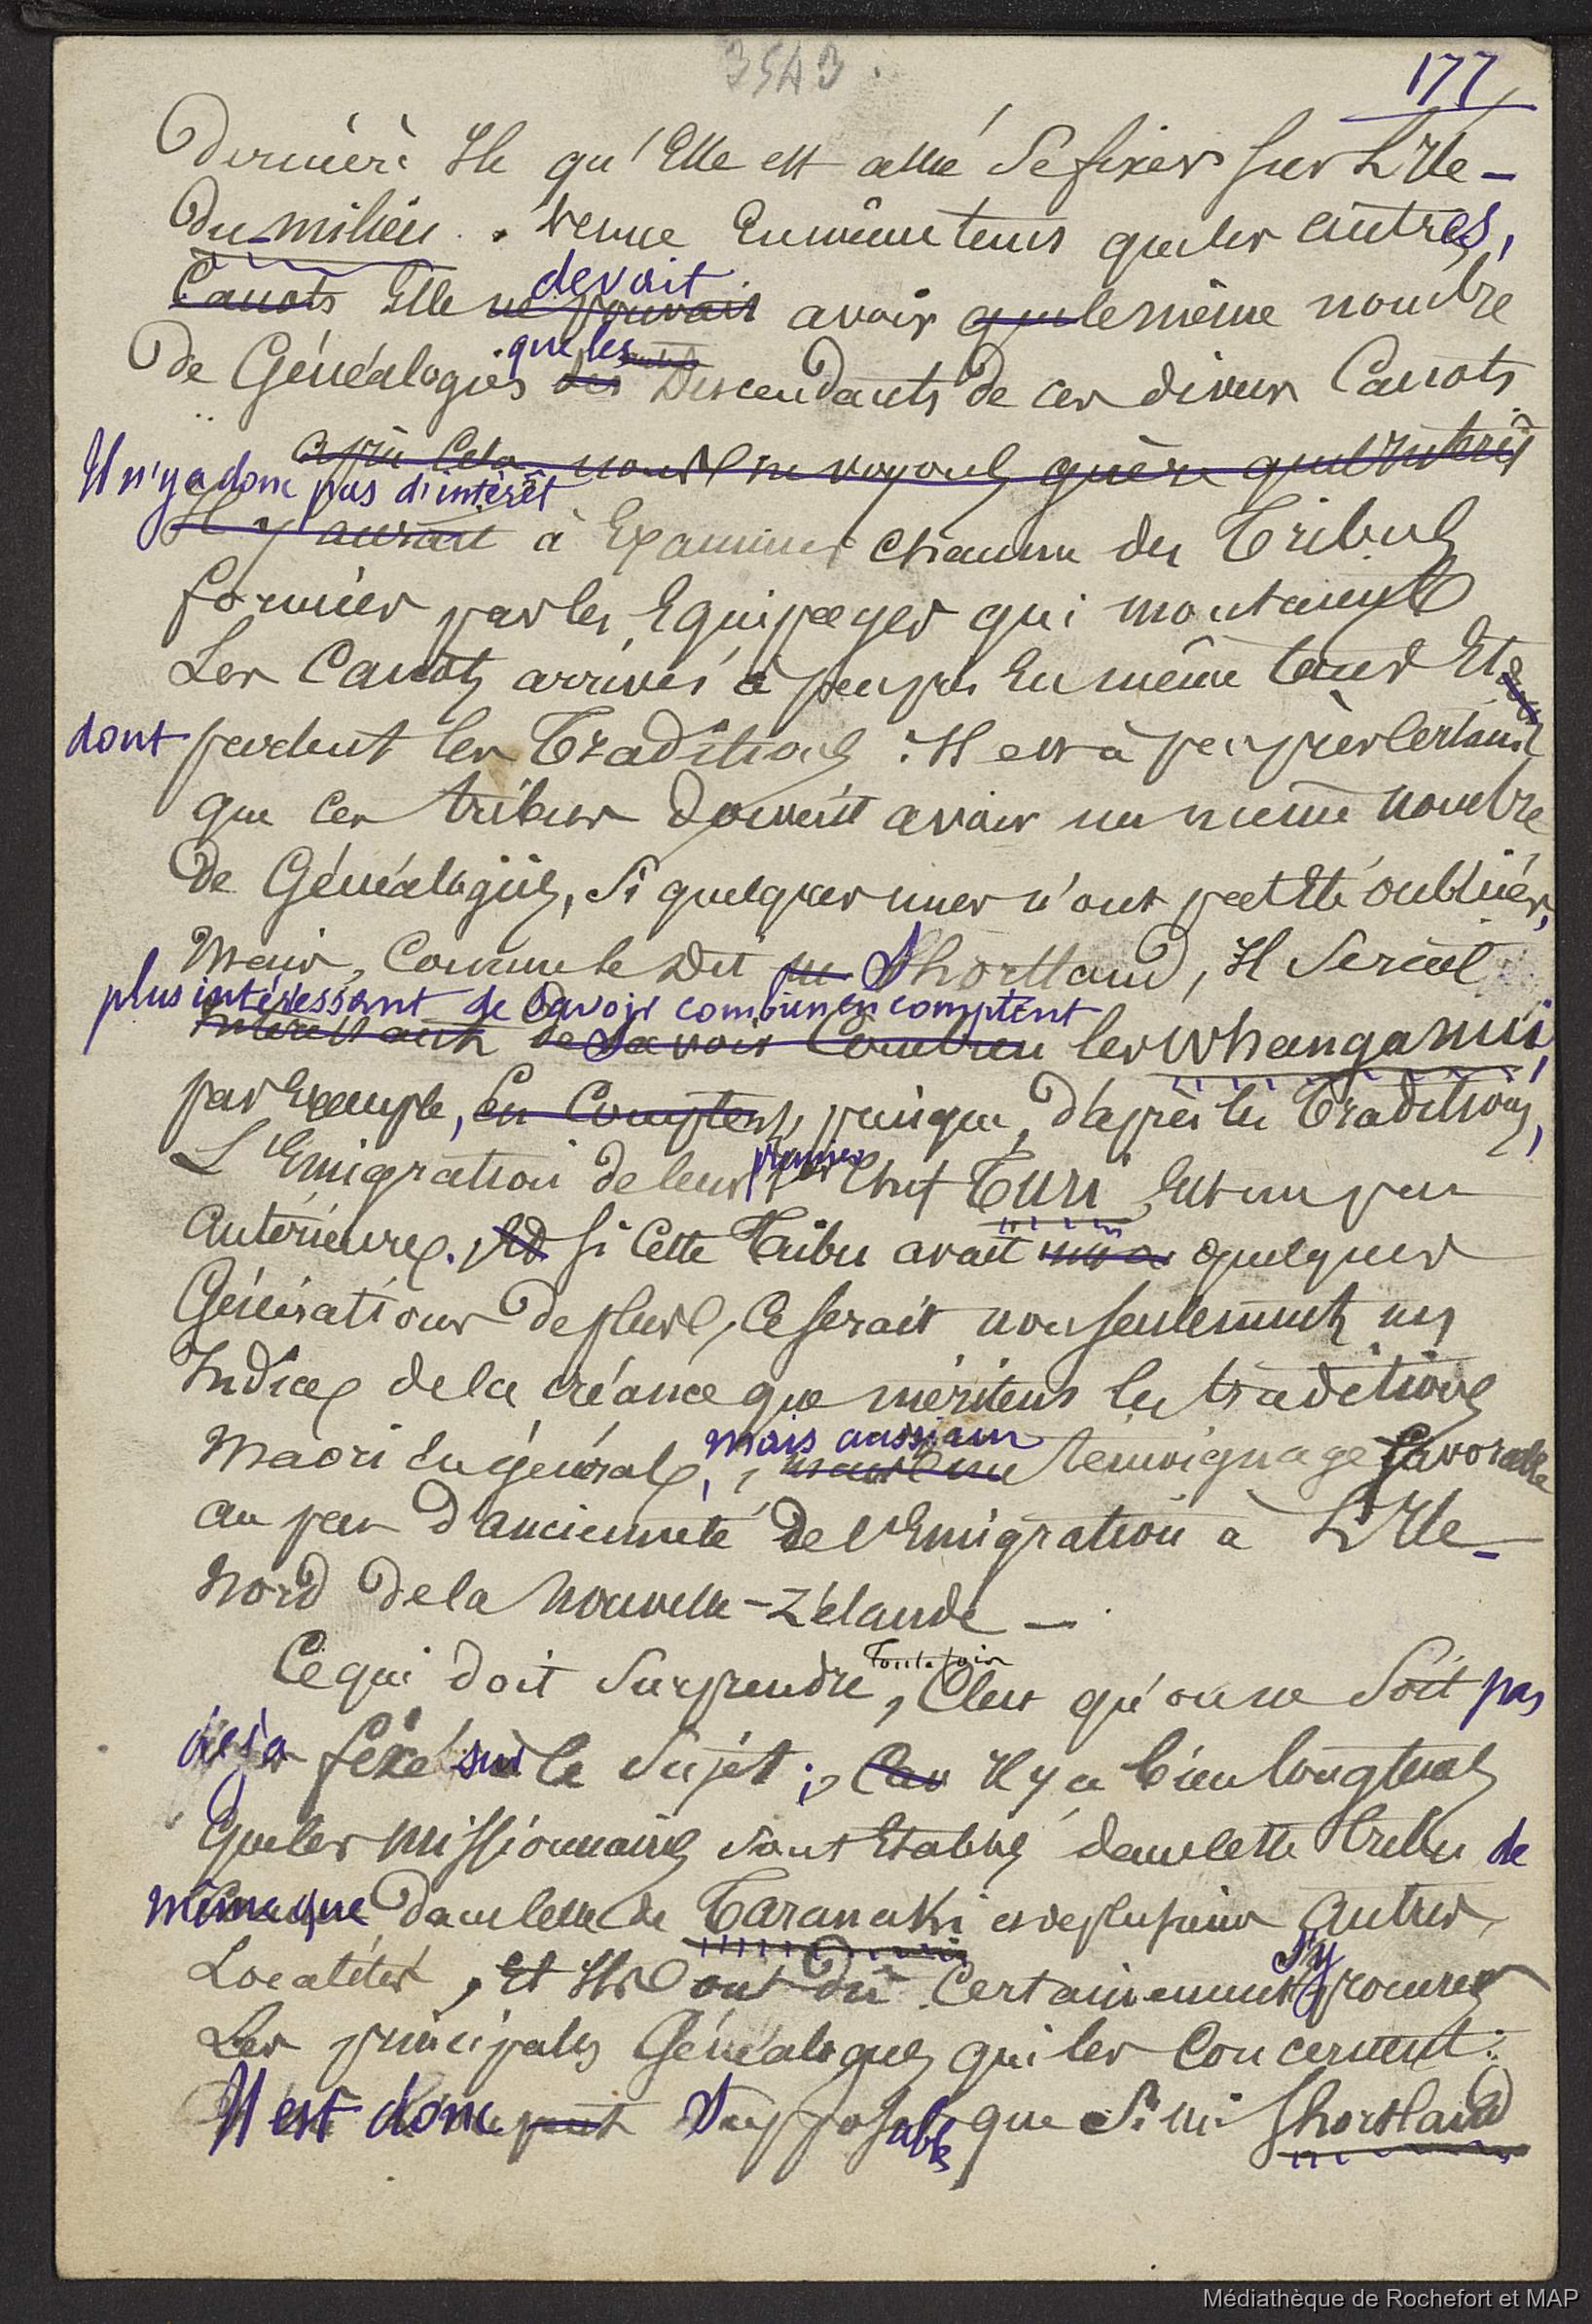 3543.
177
Dernière Ile qu'Elle est allé Se fixer sur L'Ile-
Du-milieu. venue En même tems que les autres,
devait
Canots Elle ne pouvait avoir que le même nombre
que les
De Généalogies des Descendants De ces divers Canots
après Cela nous ne voyons guère quel intérêt
Il n'y a donc pas d'intérêt
Il y aurait à Examiner chacune des Tribus
formées par les Equipages qui montaient
Les Canots arrivés à peu près En même tems Et
dont perdent les Traditions. Il est à peu près Certain
que ces tribus doivent avoir un même nombre
De Généalogies, Si quelques unes n'ont pas Eté oubliées,
Mais, Comme le Dit Shortland, Il Serait
plus intéressant de Savoir combien en comptent
Intéressant de Savoir Combien les Whanganui,
par Exemple, En Comptent, puisque, D'après les Traditions,
premier
L'Emigration de leur 1er Chef Turi Est un peu
Antérieure. Si Cette Tribu avait quelques
Générations De plus, Ce serait non seulement un
Indice de la créance que méritent les traditions
mais aussi un
Maori En général, mais un témoignage favorable
au peu D'ancienneté De l'Emigration à L'Ile-
Nord De la Nouvelle-Zélande —
Toutefois
Ce qui doit Surprendre, C'est qu'on ne Soit pas
déjà fixé sur le Sujet; Car Il y a bien longtems
Que les Missionnaires Sont Etablis dans cette tribu de
même que Dans celle de Taranaki et de plusieurs Autres
s'y
Localités, Et Ils ont Dû Certainement procurer
Les principales Généalogies qui les Concernent.
Il est donc Supposable que Si Mr Shortland
Médiathèque de Rochefort et MAP